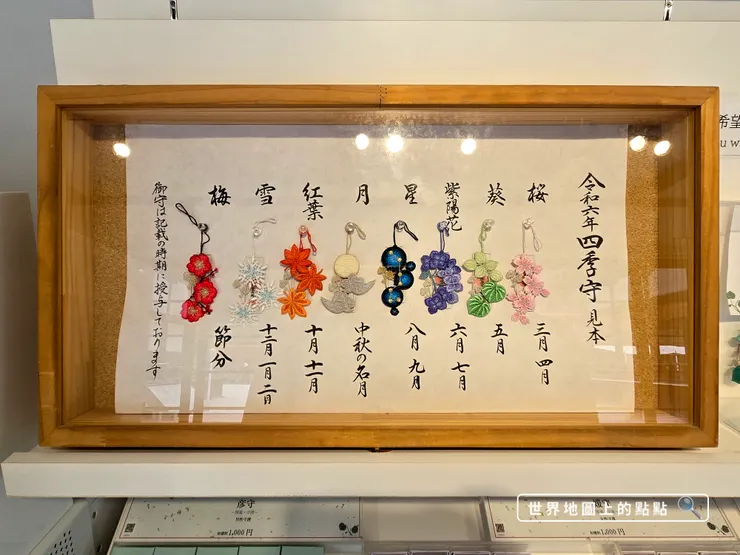 令和六年 四季守 見本
桜
三月 四月
葵
五月
紫陽花
六月 七月
星
八月 九月
月
中秋の名月
紅葉
十月 十一月
雪
十二月 一月 二月
梅
節分
御守は記載の時期に授与しております
希望
u w
彦守
1,000円
1,000円
世界地圖上的點點